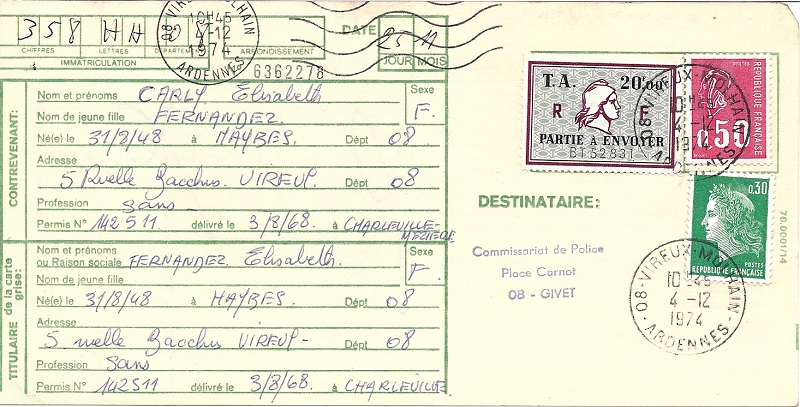 08-VIREUX-MOLHAIN
10H45
4-12
1974
ARDENNES
358 HH 08
DATE
25 11
CHIFFRES LETTRES DÉPARTEM ARRONDISSEMENT
JOUR MOIS
IMMATRICULATION
6362278
CONTREVENANT:
Nom et prénoms CARLY Elisabeth
Sexe
F.
Nom de jeune fille FERNANDEZ
Né(e) le 31/8/48 à HAYBES Dépt 08
Adresse
5 Ruelle Bacchus VIREUX Dépt 08
Profession
sans
Permis N° 142511 délivré le 3/8/68 à CHARLEVILLE-
MEZIERE
TITULAIRE de la carte grise:
Nom et prénoms
ou Raison sociale FERNANDEZ Elisabeth
Sexe
F
Nom de jeune fille
Né(e) le 31/8/48 à HAYBES Dépt 08
Adresse
5 ruelle Bacchus VIREUX- Dépt 08
Profession
sans
Permis N° 142511 délivré le 3/8/68. à CHARLEVILLE
T.A. 20f00
R F
PARTIE A ENVOYER
BT52831
POSTES
RÉPUBLIQUE FRANÇAISE
0,50
08-VIREUX-MOLHAIN
10H45
4-12
1974
ARDENNES
0,30
POSTES
RÉPUBLIQUE FRANÇAISE
DESTINATAIRE:
Commissariat de Police
Place Carnot
08 - GIVET
08-VIREUX-MOLHAIN
10H45
4-12
1974
-ARDENNES-
70.0001/14